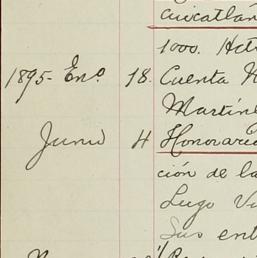 cuicatlán
1000. Hct
1895-Eno. 18. Cuenta
Martín
Junio 4 Honorario
ción de la
Lugo Vi
Sus ent